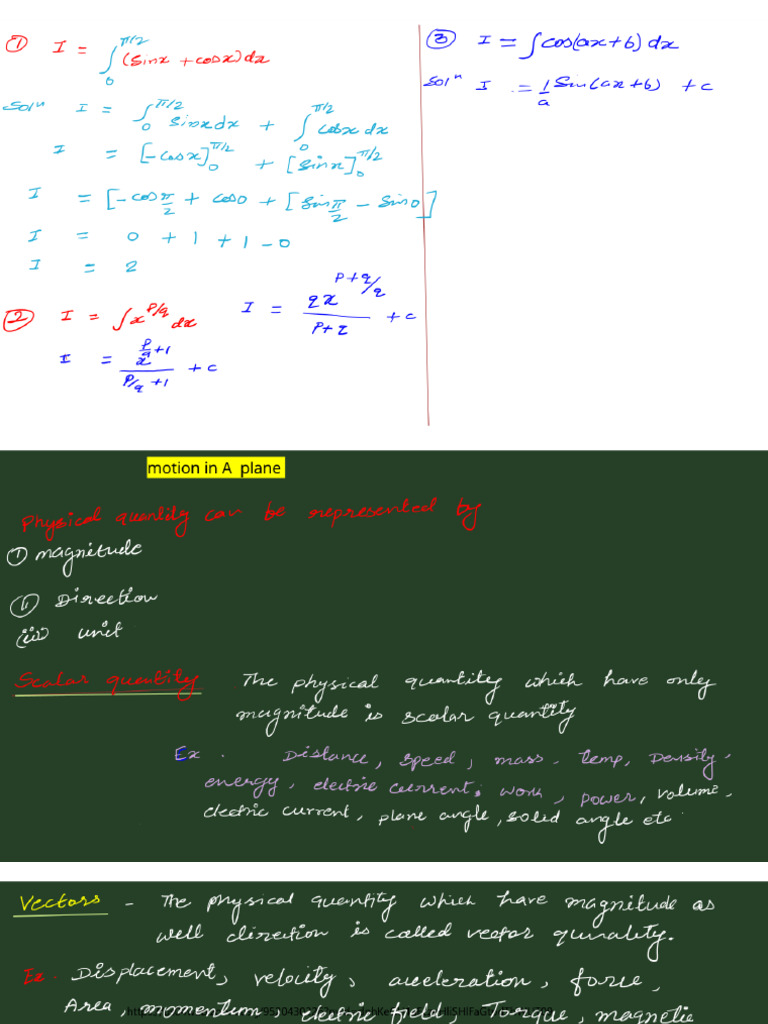 ① I = ∫₀^π/2 (sinx + cosx) dx
Solⁿ I = ∫₀^π/2 sinx dx + ∫₀^π/2 cosx dx
I = [-cosx]₀^π/2 + [sinx]₀^π/2
I = [-cos π/2 + cos0 + [sin π/2 - sin0]
I = 0 + 1 + 1 - 0
I = 2
② I = ∫ x^p/q dx
I = x^(p/q + 1) / (p/q + 1) + c
I = q x^(p+q/q) / (p+q) + c
③ I = ∫ cos(ax+b) dx
Solⁿ I = 1/a sin(ax+b) + c
motion in A plane
Physical quantity can be represented by
① magnitude
(ii) Direction
(iii) unit
Scalar quantity The physical quantity which have only
magnitude is scalar quantity
Ex. Distance, speed, mass, temp, Density,
energy, electric current, work, power, volume,
electric current, plane angle, solid angle etc.
Vectors - The physical quantity which have magnitude as
well direction is called vector qunality.
Ex. Displacement, velocity, acceleration, force,
Area, momentum, electric field, Torque, magnetic